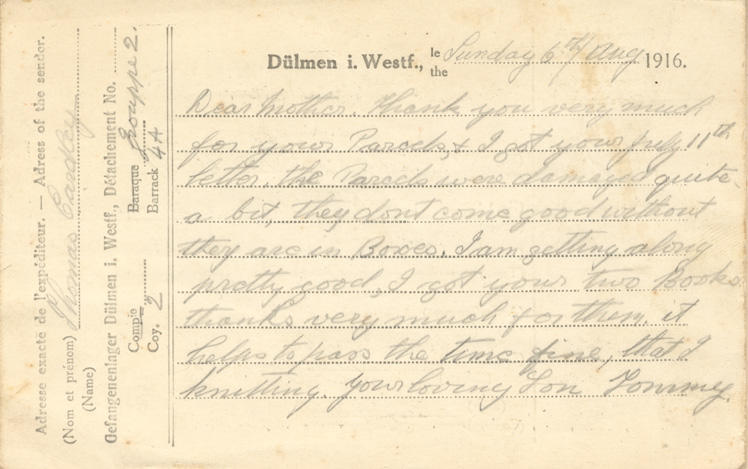 Dülmen i. Westf., le
the Sunday 6th Aug 1916.
Dear Mother. Thank you very much
for your Parcels, & I got your July 11th
letter, the Parcels were damaged quite
a bit, they dont come good without
they are in Boxes, I am getting along
pretty good, I got your two Books
thanks very much for them, it
helps to pass the time fine, that &
knitting. Your loving Son Tommy.
Adresse exacte de l'expéditeur. — Adress of the sender.
(Nom et prénom) Thomas
(Name)
Gefangenenlager Dülmen i. Westf., Détachement No.
Compie
Coy. 2
Baraque Grouppe 2.
Barrack 4A